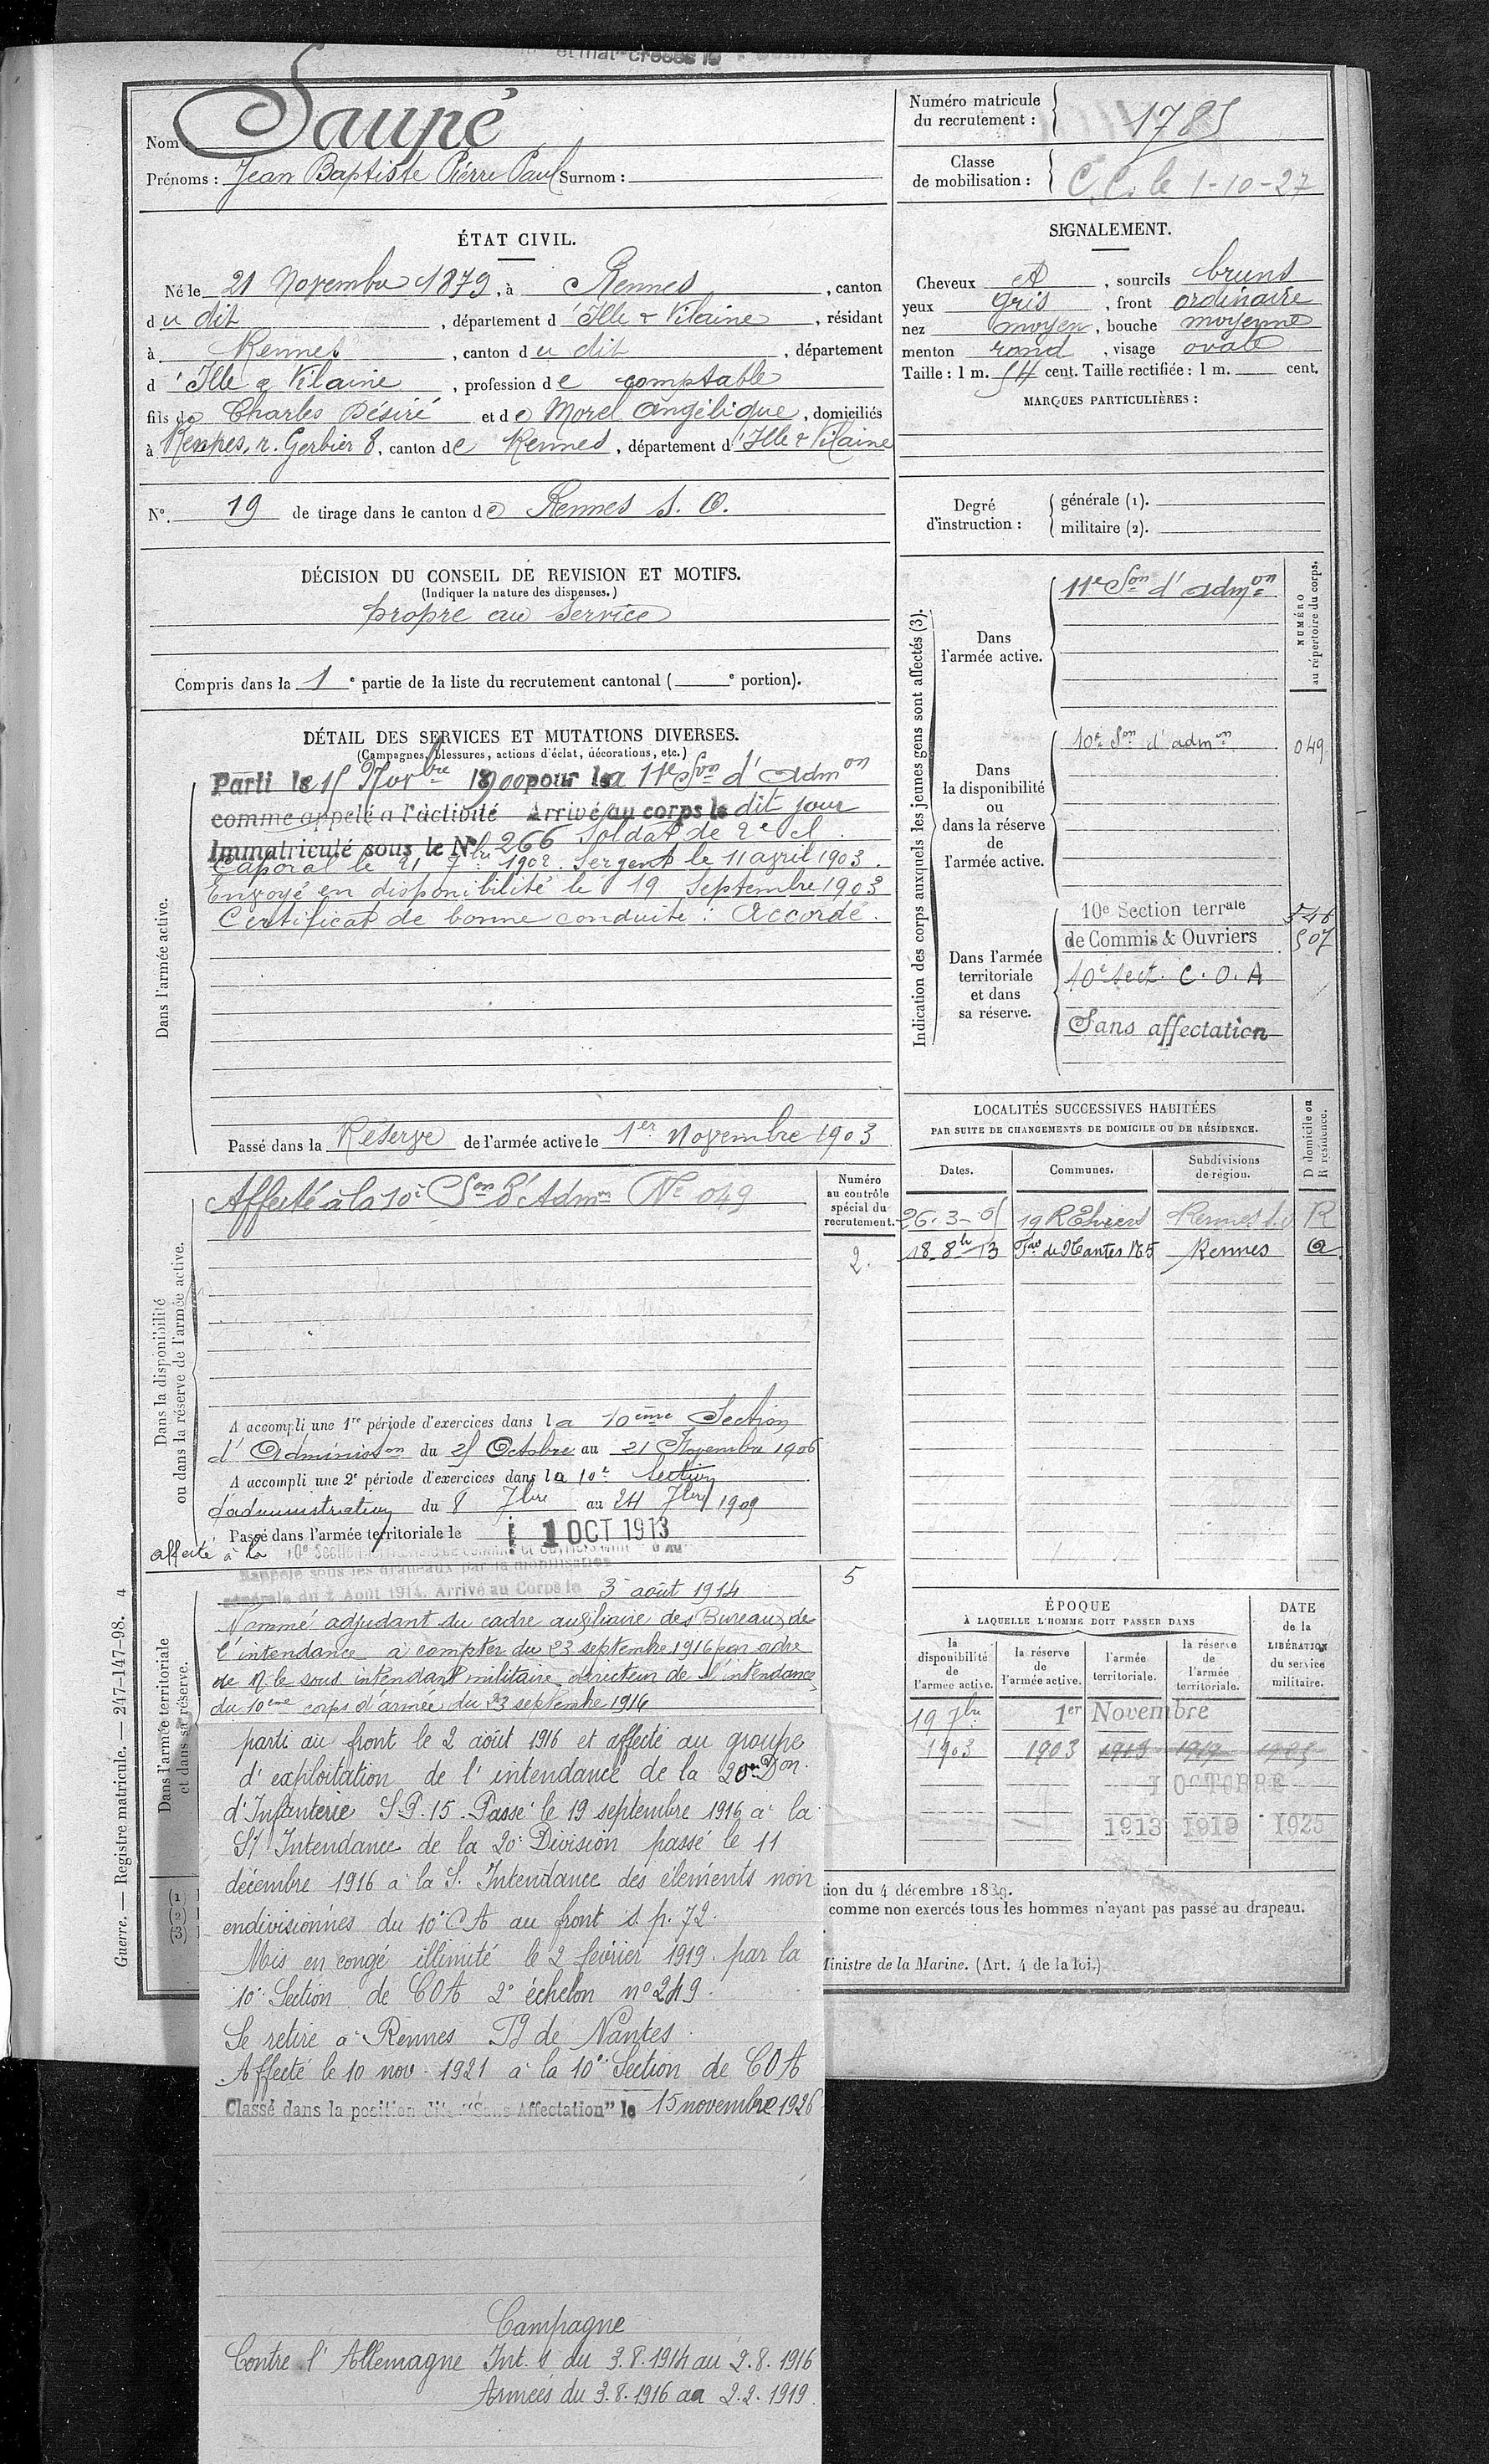 et mat-creees le
Nom : Saupé
Prénoms : Jean Baptiste Pierre Paul Surnom :
Numéro matricule du recrutement : 1785
Classe de mobilisation : C.C. le 1-10-27
ÉTAT CIVIL.
Né le 21 Novembre 1879, à Rennes, canton
du dit, département d'Ille & Vilaine, résidant
à Rennes, canton du dit, département
d'Ille & Vilaine, profession de comptable
fils de Charles Désiré et de Morel Angélique, domiciliés
à Rennes, r. Gerbier 8, canton de Rennes, département d'Ille & Vilaine
N°. 19 de tirage dans le canton de Rennes S. O.
SIGNALEMENT.
Cheveux et, sourcils bruns
yeux gris, front ordinaire
nez moyen, bouche moyenne
menton rond, visage ovale
Taille : 1 m. 54 cent. Taille rectifiée : 1 m. cent.
MARQUES PARTICULIÈRES :
Degré d'instruction : { générale (1).
militaire (2).
DÉCISION DU CONSEIL DE REVISION ET MOTIFS.
(Indiquer la nature des dispenses.)
propre au service
Compris dans la 1e partie de la liste du recrutement cantonal ( e portion).
DÉTAIL DES SERVICES ET MUTATIONS DIVERSES.
(Campagnes, blessures, actions d'éclat, décorations, etc.)
Dans l'armée active.
Parti le 15 Novbre 1900 pour la 11e Son d'Admon
comme appelé à l'activité Arrivé au corps le dit jour
Immatriculé sous le N° 266 Soldat de 2e cl.
Caporal le 21 7bre 1902. Sergent le 11 avril 1903.
Envoyé en disponibilité le 19 Septembre 1903
Certificat de bonne conduite : Accordé.
Passé dans la Réserve de l'armée active le 1er Novembre 1903
Indication des corps auxquels les jeunes gens sont affectés (3).
NUMÉRO au répertoire du corps.
Dans l'armée active.
11e Son d'Admon
Dans la disponibilité ou dans la réserve de l'armée active.
10e Son d'admon 049
Dans l'armée territoriale et dans sa réserve.
10e Section terrale
de Commis & Ouvriers 507
10e Sect. C.O.A
Sans affectation
LOCALITÉS SUCCESSIVES HABITÉES
PAR SUITE DE CHANGEMENTS DE DOMICILE OU DE RÉSIDENCE.
Dates. Communes. Subdivisions de région. D domicile ou R résidence.
Rennes R
18 8bre 13 Fg de Nantes 165 Rennes
Dans la disponibilité
ou dans la réserve de l'armée active.
Affecté à la 10e Son d'Admon N° 049
Numéro au contrôle spécial du recrutement.
2.
A accompli une 1re période d'exercices dans la 10ème Section
d'Administon du 25 Octobre au 21 Novembre 1906
A accompli une 2e période d'exercices dans la 10e Section
d'administration du 8 7bre au 24 7bre 1909
Passé dans l'armée territoriale le 1 OCT 1913
affecté à la 10e Section
Dans l'armée territoriale
et dans sa réserve.
Rappelé sous les drapeaux par la mobilisation
générale du 2 Août 1914. Arrivé au Corps le 3 août 1914
5
Nommé adjudant du cadre auxiliaire des Bureaux de
l'intendance à compter du 23 septembre 1916 par ordre
de M le sous intendant militaire directeur de l'intendance
du 10ème corps d'armée du 23 septembre 1916
parti au front le 2 août 1916 et affecté au groupe
d'exploitation de l'intendance de la 20e Don
d'Infanterie S.P. 15. Passé le 19 septembre 1916 à la
S/ Intendance de la 20e Division passé le 11
décembre 1916 à la S. Intendance des éléments non
endivisionnés du 10e CA au front s.p. 72.
Mis en congé illimité le 2 février 1919. par la
10e Section de COA 2e échelon n° 249.
Se retire à Rennes Fg de Nantes.
Affecté le 10 nov. 1921 à la 10e Section de COA
Classé dans la position dite "Sans Affectation" le 15 novembre 1926
Campagne
Contre l'Allemagne Int. s du 3.8.1914 au 2.8.1916
Armées du 3.8.1916 au 2.2.1919.
ÉPOQUE
À LAQUELLE L'HOMME DOIT PASSER DANS
la disponibilité de l'armée active. la réserve de l'armée active. l'armée territoriale. la réserve de l'armée territoriale.
DATE de la LIBÉRATION du service militaire.
19 7bre 1er Novembre
1903 1903 1913 1919 1925
1 OCTOBRE
1913 1919 1925
(1)
(2)
(3)
tion du 4 décembre 1889.
comme non exercés tous les hommes n'ayant pas passé au drapeau.
Ministre de la Marine. (Art. 4 de la loi.)
Guerre. — Registre matricule. — 247-147-98. 4